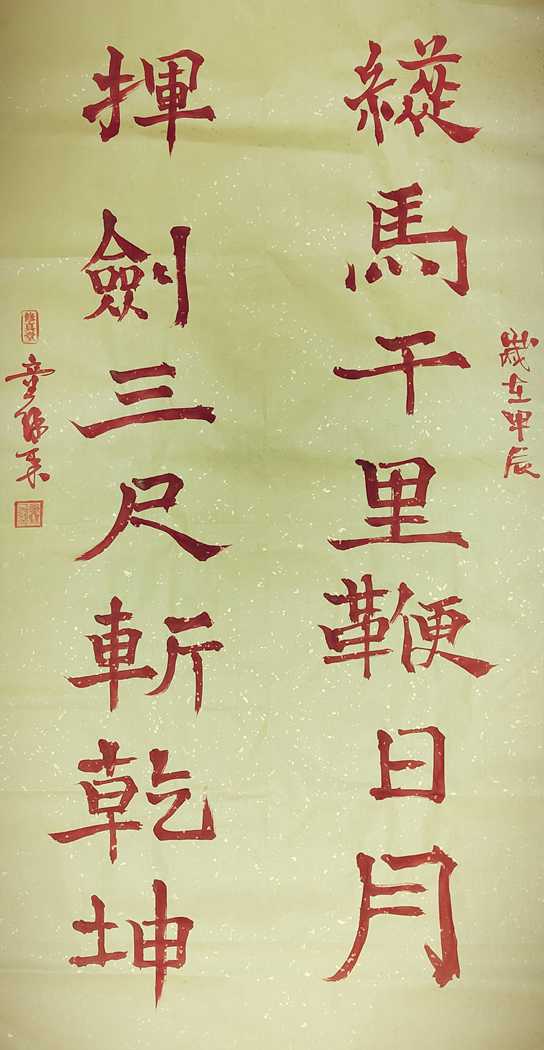 歲在甲辰
縱馬千里鞭日月
揮劍三尺斬乾坤
修真堂
童